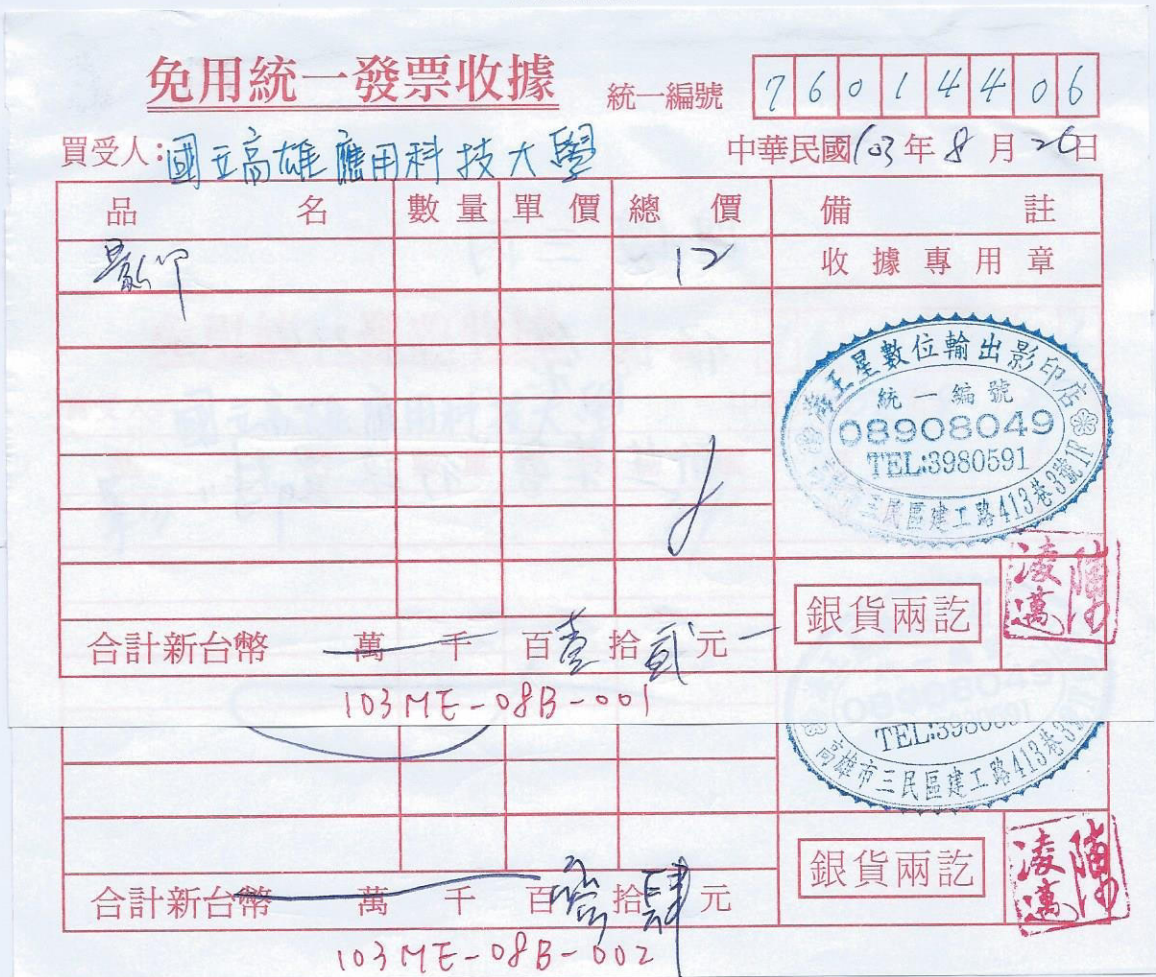 免用統一發票收據
統一編號 76014406
買受人:國立高雄應用科技大學
中華民國103年8月26日
品名 數量 單價 總價 備註
影印 12 收據專用章
海王星數位輸出影印店
統一編號
08908049
TEL:3980591
高雄市三民區建工路413巷3號1F
銀貨兩訖
合計新台幣 萬 千 百壹拾貳元
103ME-08B-001
08908049
TEL:3980591
高雄市三民區建工路413巷3
銀貨兩訖
合計新台幣 萬 千 百 拾肆元
103ME-08B-002